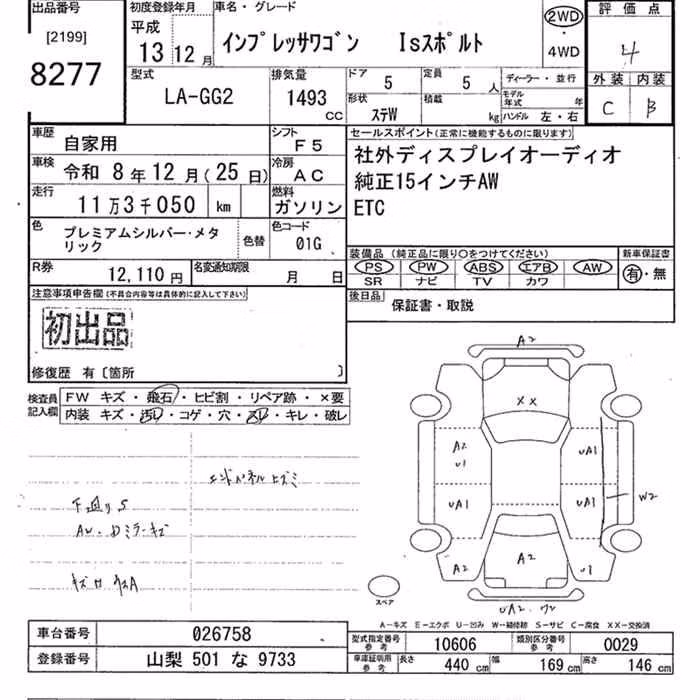 出品番号
[2199]
8277
初度登録年月
平成
13 12 月
車名・グレード
インプレッサワゴン Isスポルト
2WD
・
4WD
評価点
4
外装 内装
C B
型式
LA-GG2
排気量
1493
CC
ドア
5
定員
5 人
形状
ステW
積載
kg
ディーラー・並行
モデル
年式 年
ハンドル 左・右
車歴
自家用
シフト
F5
車検
令和 8年 12月(25日)
冷房
AC
走行
11万3千050 km
燃料
ガソリン
色
プレミアムシルバー・メタ
リック
色替
色コード
01G
R券
12,110 円
名変通知期限
月 日
セールスポイント(正常に機能するものに限ります)
社外ディスプレイオーディオ
純正15インチAW
ETC
装備品 (純正品に限り○をつけてください)
PS PW ABS エアB AW
SR ナビ TV カワ
新車保証書
有・無
後日品
保証書・取説
注意事項申告欄(不具合内容等は具体的に記入して下さい)
初出品
修復歴 有〔箇所 〕
検査員
記入欄
FW キズ・飛石・ヒビ割・リペア跡・×要
内装 キズ・汚れ・コゲ・穴・スレ・キレ・破レ
エンドパネルヒズミ
F廻りS
AW・Dミラーキズ
A2
XX
A2
U1
UA1
UA1
UA1
W2
A2
A2
U1
UA2
W2
スペア
A-キズ E-エクボ U-凹み W-補修跡 S-サビ C-腐食 XX-交換済
車台番号
026758
登録番号
山梨 501 な 9733
型式指定番号
参考
10606
類別区分番号
参考
0029
車庫証明用
参考
長さ
440 cm
幅
169 cm
高さ
146 cm